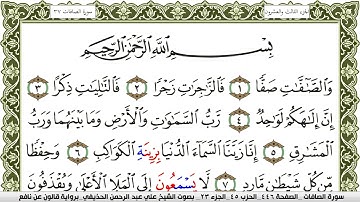 الجزء الثالث والعشرون سورة الصافات ٣٧
بِسْمِ اللَّهِ الرَّحْمَٰنِ الرَّحِيمِ
وَالصَّٰفَّٰتِ صَفّٗا ١ فَالزَّٰجِرَٰتِ زَجْرٗا ٢ فَالتَّٰلِيَٰتِ ذِكْرًا ٣
إِنَّ إِلَٰهَكُمْ لَوَٰحِدٞ ٤ رَّبُّ السَّمَٰوَٰتِ وَالْأَرْضِ وَمَا بَيْنَهُمَا وَرَبُّ
الْمَشَٰرِقِ ٥ إِنَّا زَيَّنَّا السَّمَآءَ الدُّنْيَا بِزِينَةِ الْكَوَاكِبِ ٦ وَحِفْظٗا
مِّن كُلِّ شَيْطَٰنٖ مَّارِدٖ ٧ لَا يَسْمَعُونَ إِلَى الْمَلَإِ الْأَعْلَىٰ وَيُقْذَفُونَ
سورة الصافات الصفحة ٤٤٦ الحزب ٤٥ الجزء ٢٣ بصوت الشيخ علي عبد الرحمن الحذيفي برواية قالون عن نافع